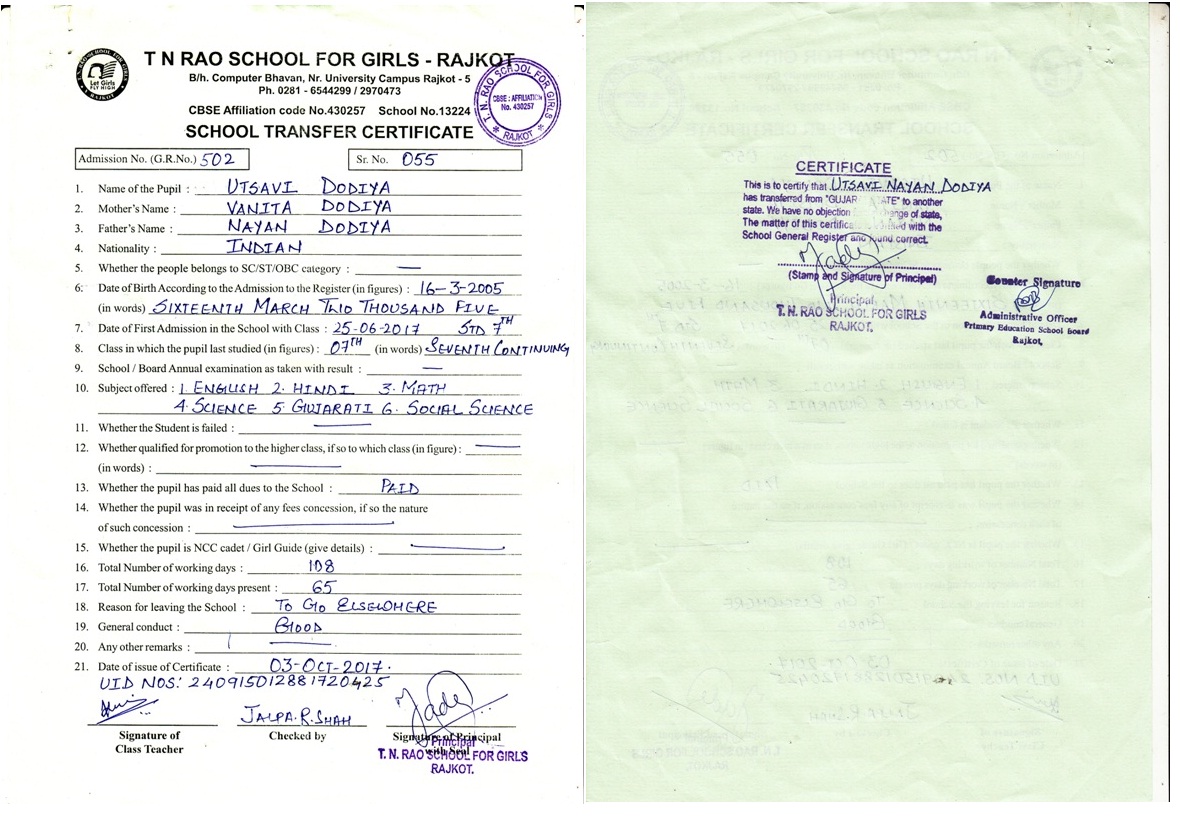 T N RAO SCHOOL FOR GIRLS - RAJKOT
B/h. Computer Bhavan, Nr. University Campus Rajkot - 5
Ph. 0281 - 6544299 / 2970473
CBSE Affiliation code No.430257 School No.13224
SCHOOL TRANSFER CERTIFICATE
Let Girls
FLY HIGH
T. N. RAO SCHOOL FOR GIRLS
CBSE : AFFILIATION
No. 430257
RAJKOT
Admission No. (G.R.No.) 502 Sr. No. 055
1. Name of the Pupil : UTSAVI DODIYA
2. Mother's Name : VANITA DODIYA
3. Father's Name : NAYAN DODIYA
4. Nationality : INDIAN
5. Whether the people belongs to SC/ST/OBC category : —
6: Date of Birth According to the Admission to the Register (in figures) : 16-3-2005
(in words) SIXTEENTH MARCH TWO THOUSAND FIVE
7. Date of First Admission in the School with Class : 25-06-2017 STD 7TH
8. Class in which the pupil last studied (in figures) : 07TH (in words) SEVENTH CONTINUING
9. School / Board Annual examination as taken with result : —
10. Subject offered : 1. ENGLISH 2. HINDI 3. MATH
4. SCIENCE 5. GUJARATI 6. SOCIAL SCIENCE
11. Whether the Student is failed : —
12. Whether qualified for promotion to the higher class, if so to which class (in figure) : —
(in words) : —
13. Whether the pupil has paid all dues to the School : PAID
14. Whether the pupil was in receipt of any fees concession, if so the nature
of such concession : —
15. Whether the pupil is NCC cadet / Girl Guide (give details) : —
16. Total Number of working days : 108
17. Total Number of working days present : 65
18. Reason for leaving the School : TO GO ELSEWHERE
19. General conduct : GOOD
20. Any other remarks : —
21. Date of issue of Certificate : 03-OCT-2017.
UID NOS: 240915012881720425
JALPA.R.SHAH
Signature of Class Teacher
Checked by
Signature of Principal with Seal
Principal
T. N. RAO SCHOOL FOR GIRLS
RAJKOT.
CERTIFICATE
This is to certify that UTSAVI NAYAN DODIYA
has transferred from "GUJAR ATE" to another
state. We have no objection change of state,
The matter of this certific with the
School General Register and found correct.
(Stamp and Signature of Principal)
Principal,
T. N. RAO SCHOOL FOR GIRLS
RAJKOT.
Counter Signature
Administrative Officer
Primary Education School Board
Rajkot.